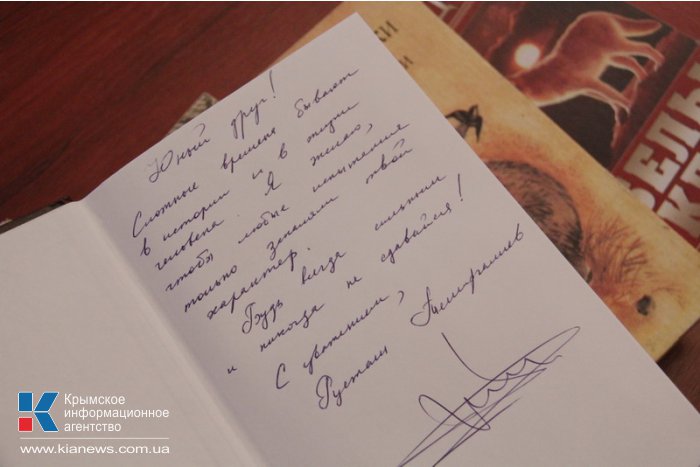 Юный друг!
Сложные времена бывают
в истории и в жизни
человека. Я желаю,
чтобы любые испытания
только закаляли твой
характер.
Будь всегда сильным
и никогда не сдавайся!
С уважением,
Рустам Темиргалиев
Крымское
информационное
агентство
www.kianews.com.ua